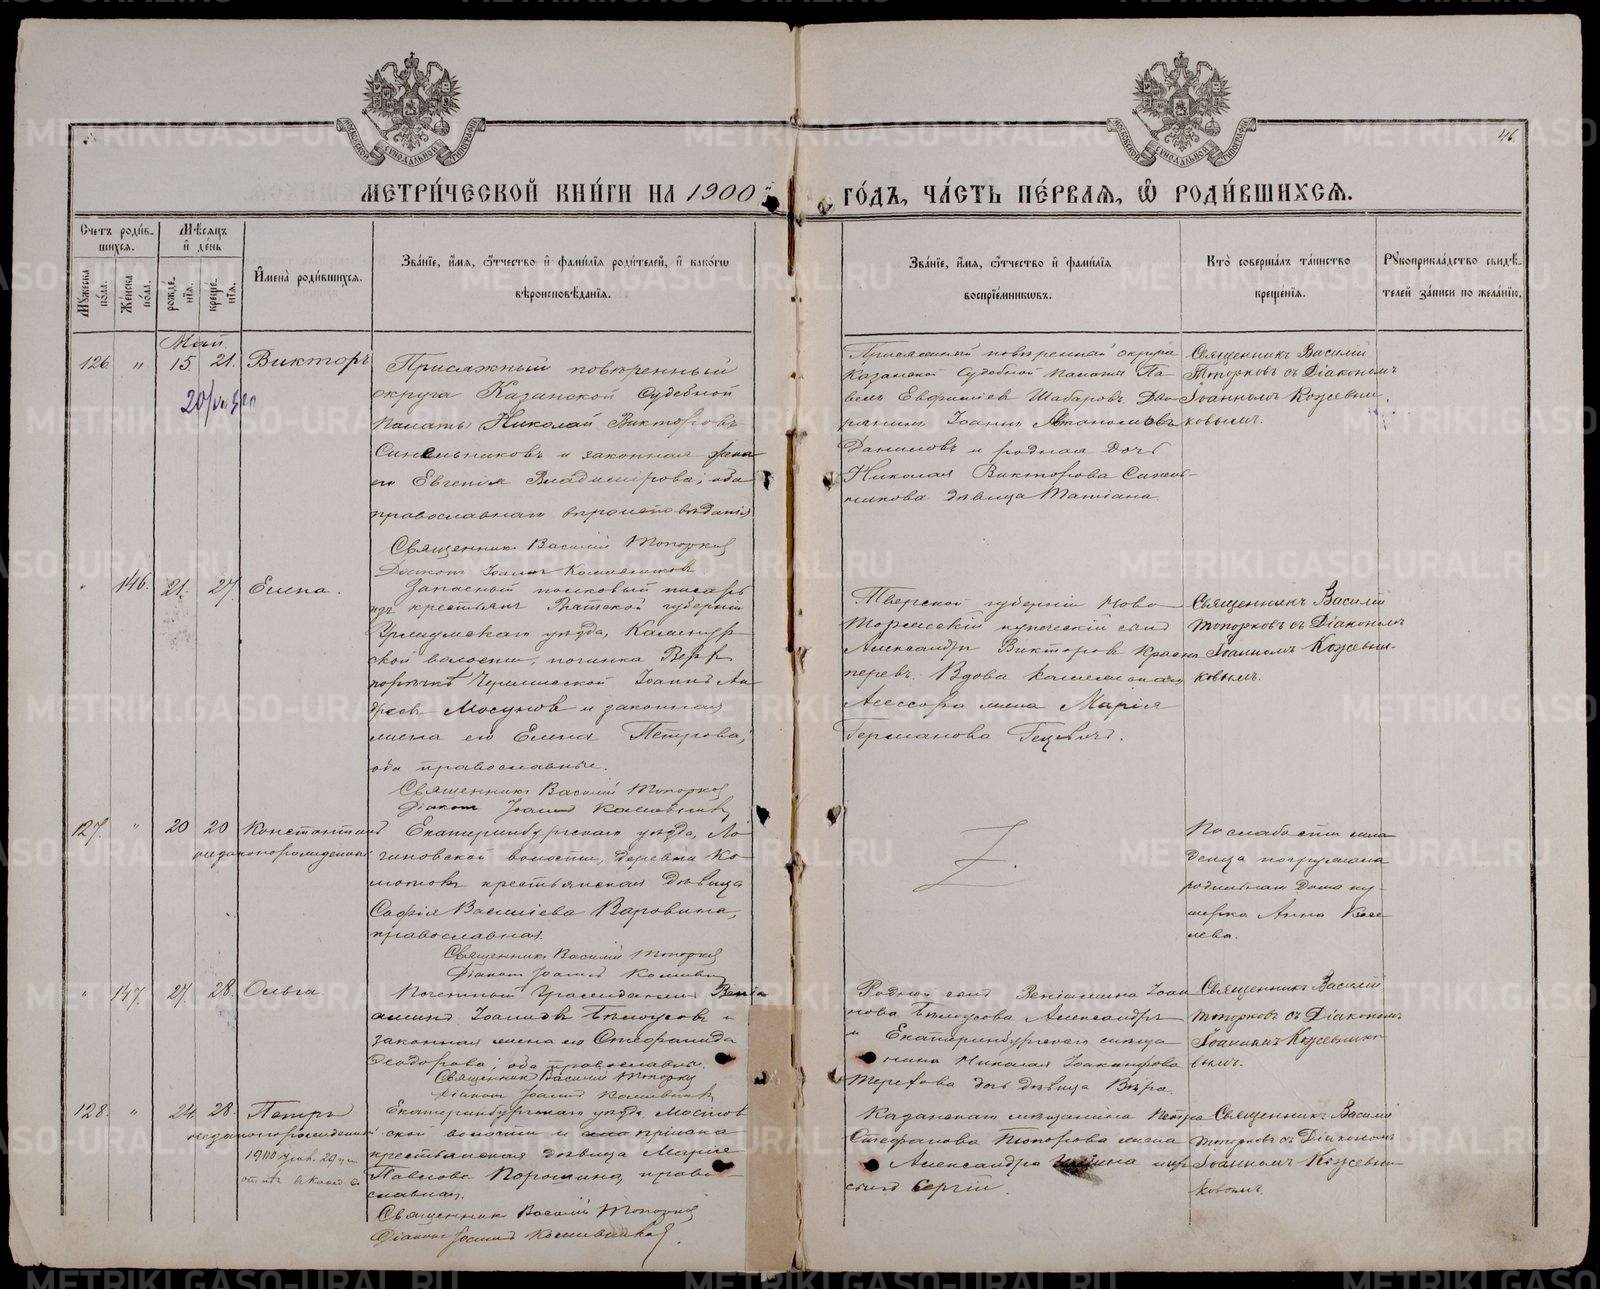 46.
МОСКОВСКОЙ СѴНОДАЛЬНОЙ ТИПОГРАФІИ
МОСКОВСКОЙ СѴНОДАЛЬНОЙ ТИПОГРАФІИ
МЕТРИ́ЧЕСКОЙ КНИ́ГИ НА 1900
ГО́ДЪ, ЧА́СТЬ ПЕ́РВАѦ, Ѡ҆ РОДИ́ВШИХСѦ.
Счетъ роди́в-
шихся.
Мѣ́сяцъ
и҆ де́нь
Мꙋ́жеска по́ла.
Же́нска по́ла.
рожде́-
нїѧ.
креще́-
нїѧ.
И҆мена̀ роди́вшихсѧ.
Зва́нїе, и҆́мѧ, ѻ҆́тчество и҆ фами́лїѧ роди́телей, и҆ како́гѡ
вѣроисповѣ́данїѧ.
Зва́нїе, и҆́мѧ, ѻ҆́тчество и҆ фами́лїѧ
воспрїе́мникѡвъ.
Кто̀ соверша́лъ та́инство
креще́нїѧ.
Рꙋкоприкла́дство свидѣ́-
телей за́писи по жела́нїю.
Май
126 " 15. 21. Викторъ
Присяжный повѣренный
округа Казанской Судебной
Палаты Николай Викторовъ
Синельниковъ и законная жена
его Евгенія Владимірова; оба
православнаго вѣроисповѣданія
Священникъ Василій Топорковъ
Діаконъ Іоаннъ Кожевниковъ
Присяжный повѣренный округа
Казанской Судебной Палаты Па-
велъ Евфиміевъ Шабаровъ, Дво-
рянинъ Іоаннъ
Даниловъ и родная дочь
Николая Викторова Синель-
никова дѣвица Татіана.
Священникъ Василій
Топорковъ съ Діакономъ
Іоанномъ Кожевни-
ковымъ.
" 146. 21. 27. Елена.
Запасный полковый писарь
изъ крестьянъ Вятской губерніи
Уржумскаго уѣзда,
ской волости, починка Верх
Черемисской Іоаннъ Ан-
дреевъ Мосуновъ и законная
жена его Елена Петрова;
оба православные.
Священникъ Василій Топорковъ
Діаконъ Іоаннъ Кожевниковъ
Тверской губерніи Ново-
торжскій купеческій сынъ
Александръ Викторовъ
Вдова Коллежскаго
Ассесора жена Марія
Германова Гецевичъ.
Священникъ Василій
Топорковъ съ Діакономъ
Іоанномъ Кожевни-
ковымъ.
127. " 20 20 Константинъ
незаконорожденный
Екатеринбургскаго уѣзда, Ло-
гиновской волости, деревни
крестьянская дѣвица
Софія Васильева Варовина,
православная.
Священникъ Василій Топорковъ
Діаконъ Іоаннъ Кожевниковъ
По слабости мла-
денца погружала
родильнаго дома аку-
шерка Анна
лева.
" 147. 27. 28. Ольга
Почетный Гражданинъ Веніа-
минъ Іоанновъ Бѣлоусовъ и
законная жена его Стефанида
Ѳеодорова; оба православные.
Священникъ Василій Топорковъ
Діаконъ Іоаннъ Кожевниковъ
Родной сынъ Веніамина Іоан-
нова Бѣлоусова Александръ
и Екатеринбургскаго
Николая Іоакинфова
Терехова дочь дѣвица Вѣра.
Священникъ Василій
Топорковъ съ Діакономъ
Іоанномъ Кожевнико-
вымъ.
128. " 24. 28. Петръ
незаконорожденный
Екатеринбургскаго уѣзда, Мостов-
ской волости и пріиска
крестьянская дѣвица Марія
Павлова Порошина, право-
славная.
Священникъ Василій Топорковъ
Діаконъ Іоаннъ Кожевниковъ.
Казанскаго мѣщанина Петра
Стефанова Топорова жена
Александра
сынъ Сергій.
Священникъ Василій
Топорковъ съ Діакономъ
Іоанномъ Кожевни-
ковымъ.
METRIKI.GASO-URAL.RU